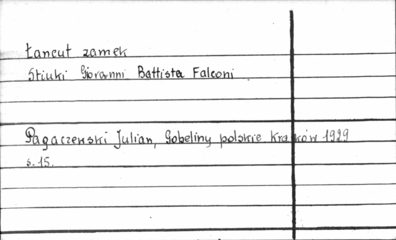 Łańcut zamek
Stiuki Giovanni Battista Falconi
Pagaczewski Julian, Gobeliny polskie Kraków 1929
s. 15.